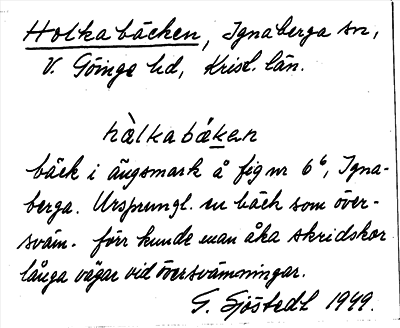 Holkabäcken, Ignaberga sn,
V. Göinge hd, Krist. län.
hàlkabáken
bäck i ängsmark å fig nr 6⁶, Igna-
berga. Ursprungl. en bäck som över-
sväm. förr kunde man åka skridskor
långa vägar vid översvämningar.
G. Sjöstedt 1949.